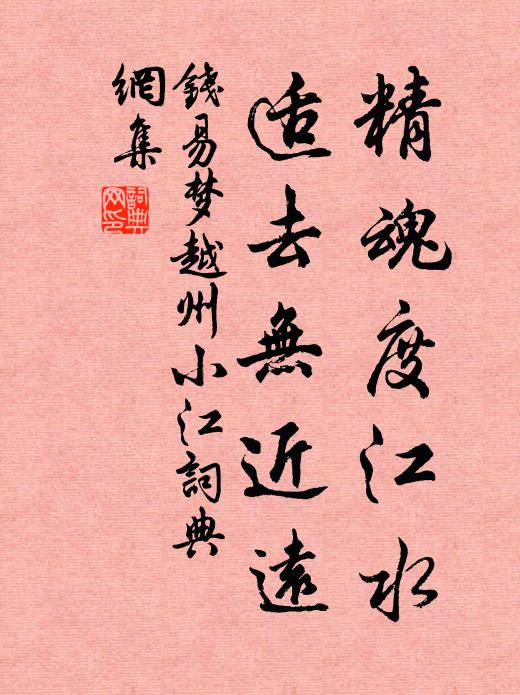 精魂度江水
适去無近遠
錢易梦越州小江詞典
網集
詞典网印